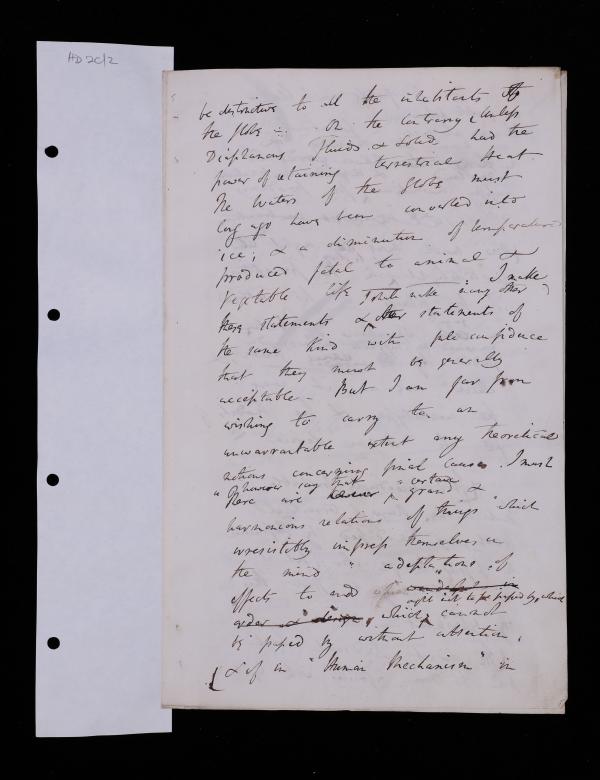 HD 20c/2
be destructive to all the inhabitants of
the globe -:- On the contrary, Unless
Diaphanous Fluids & solids had the
power of retaining terrestrial Heat
The Waters of the Globe must
long ago have been converted into
ice; & a diminution of temperature
produced fatal to animal &
Vegetable life I make
these statements & other statements of
the same kind with full confidence
that they must be generally
acceptable - But I am far from
wishing to carry to an
unwarrantable extent any theoretical
notions concerning final causes. I must
however say that certain
there are grand &
harmonious relations of things which
irresistibly impress themselves on
the mind " adaptations of
effects to ends
ought not to be passed by, which
order & design, which cannot
be passed by without attention,
& if in "Human Mechanism" in